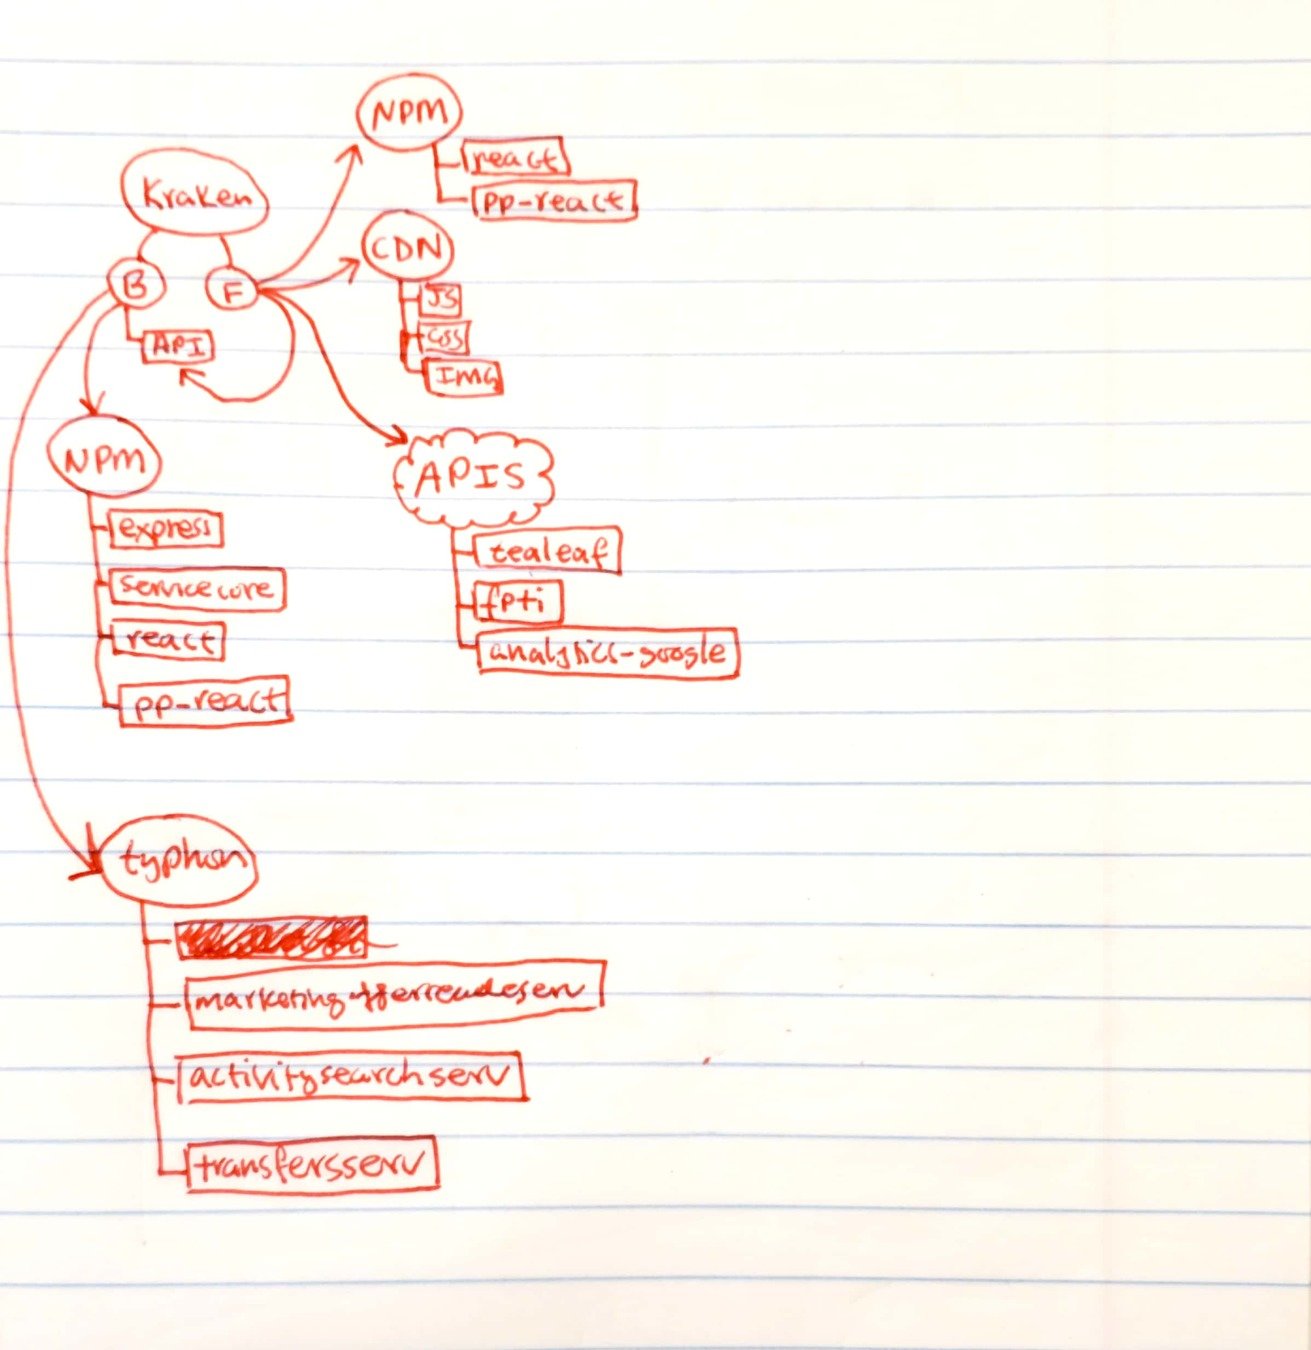 NPM
react
pp-react
Kraken
CDN
B
F
JS
CSS
API
IMG
NPM
APIS
express
tealeaf
servicecore
fpti
react
analytics-google
pp-react
typhon
activitysearchserv
transfersserv